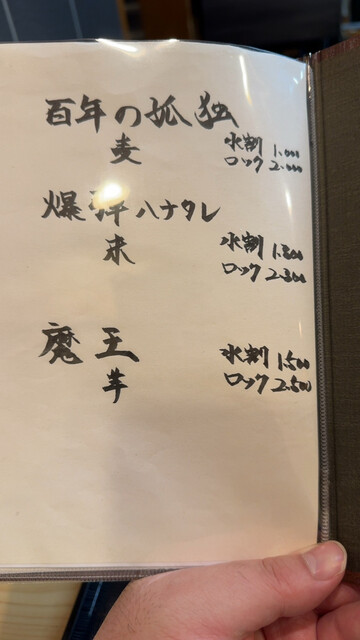 百年の孤独
麦
水割 1.000
ロック 2.000
爆弾ハナタレ
米
水割 1.300
ロック 2.300
魔王
芋
水割 1.500
ロック 2.500